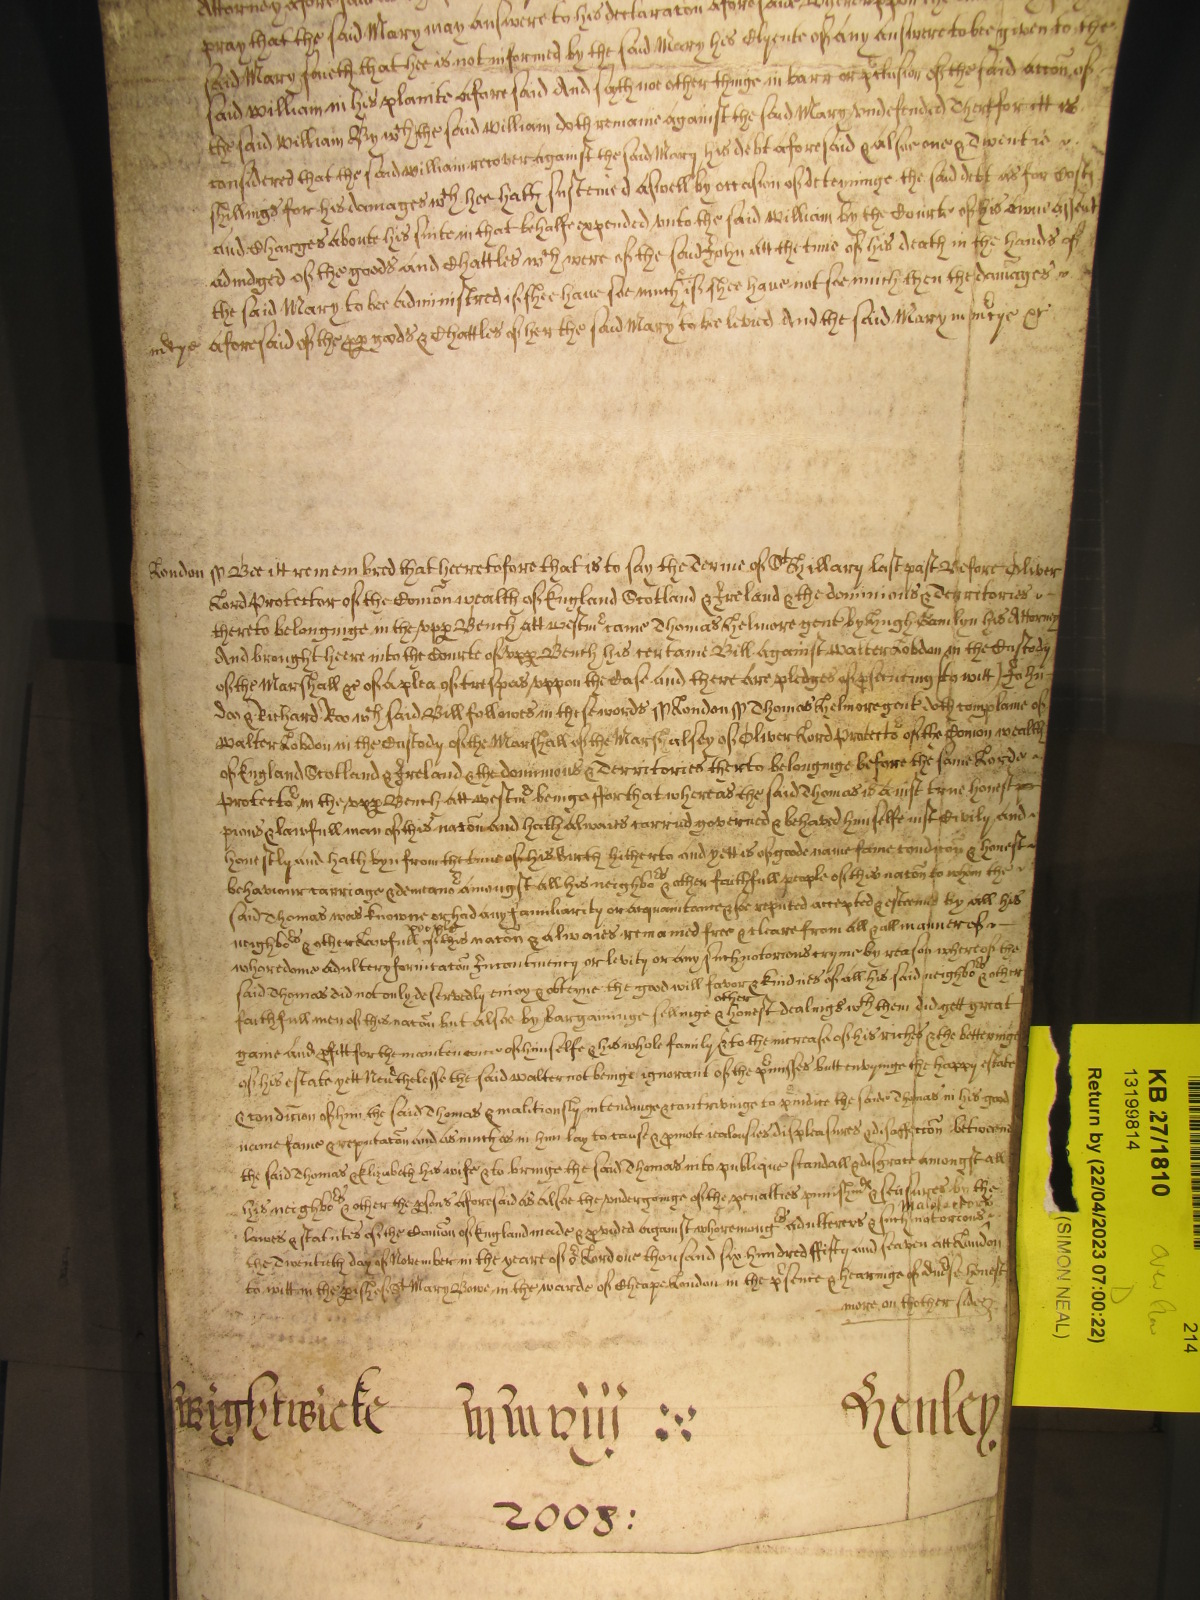 pray that the said Mary may answere to his declaracon aforesaid
said Mary saieth that hee is not informed by the said Mary his Clyente of any answere to bee given to the
said William in his plainte aforesaid And sayth not other thinge in barr or p'clusion of the said accon of
the said William By wch the said William doth remaine against the said Mary undefended Therfor itt is
considered that the said William recover against the said Mary his debt aforesaid & alsoe one & Twentie
shillings for his damages wch hee hath susteined aswell by occasion of deteyninge the said debt as for Costs
and Charges aboute his suite in that behalfe expended unto the said William by the Courte of his owne assent
adiudged of the goods and Chattles wch were of the said John att the time of his death in the hands of
the said Mary to bee administred if shee have soe much & if shee have not soe much then the damages
aforesaid of the pp goods & Chattles of her the said Mary to be levied And the said Mary in m'cye &c
m'cye
London ss Bee itt remembred that heeretofore that is to say the Terme of St Hillary last past Before Oliver
Lord Protector of the Comon wealth of England Scotland & Ireland & the dominions & Territories
thereto belonginge in the upp Bench att Westmr came Thomas Helmore gent by Hugh Hamlyn his Attorney
And brought heere into the Courte of upp Bench his certaine Bill against Walter Lobdon in the Custody
of the Marshall &c of a plea of trespas uppon the Case And there are pledges of p'secuting to witt John
doo & Richard Roo wch said Bill followes in these words ss London ss Thomas Helmore gent doth complaine of
Walter Lobdon in the Custody of the Marshall of the Marshalsey of Oliver Lord Protector of the Comon wealth
of England Scotland & Ireland & the dominions & Territories therto belonginge before the same Lord
Protector in the upp Bench att Westmr beinge for that whereas the said Thomas is a iust true honest
pious & lawfull man of this nacon and hath alwaies carried governed & behaved himselfe iust Civily and
honestly and hath byn from the time of his birth hitherto and yett is of goode name fame condicon & honest
behaviour carriage & demeanor amongst all his neighbors & other faithfull people of this nacon to whom the
said Thomas was knowne or had any familiarity or acquaintance & soe reputed accepted & esteemed by all his
neighbors & other Lawfull people of this nacon & alwaies remained free & cleare from all & all manner of
whoredome adultery fornicacon Incontinency or levity or any such notorious cryme by reason whereof the
said Thomas did not only deservedly enioy & obteyne the good will favor & kindnes of all his said neighbors & other
faithfull men of this nacon but alsoe by bargaininge sellinge & other honest dealings wth them did gett great
gaine and p'fitt for the maintenance of himselfe & his whole family & to the increase of his riches & the betteringe
of his estate yett Neverthelesse the said Walter not beinge ignorant of the p'misses butt envyinge the happy estate
& condicion of him the said Thomas & malitiously intendinge & contrivinge to p'iudice the said Thomas in his good
name fame & reputacon and as much as in him lay to cause & p'mote iealousies displeasures & disaffeccon betweene
the said Thomas & Elizabeth his wife & to bringe the said Thomas into publique scandall & disgrace amongst all
his neighbors & other the p'sons aforesaid as alsoe the undergoinge of the penalties punishmts & seasures by the
lawes & statutes of the Comon of England made & p'vided against whoremongers adulterers & such notorious Malefactors
the Twentieth day of November in the yeare of or Lord one thousand six hundred ffifty and seaven att London
to witt in the p'ish of St Mary Bowe in the warde of Cheape London in the p'sence & hearinge of div'se honest
more on thother side
Wightwicke mmviij Henley
2008:
KB 27/1810
13199814
Return by (22/04/2023 07:00:22)
(SIMON NEAL)
214